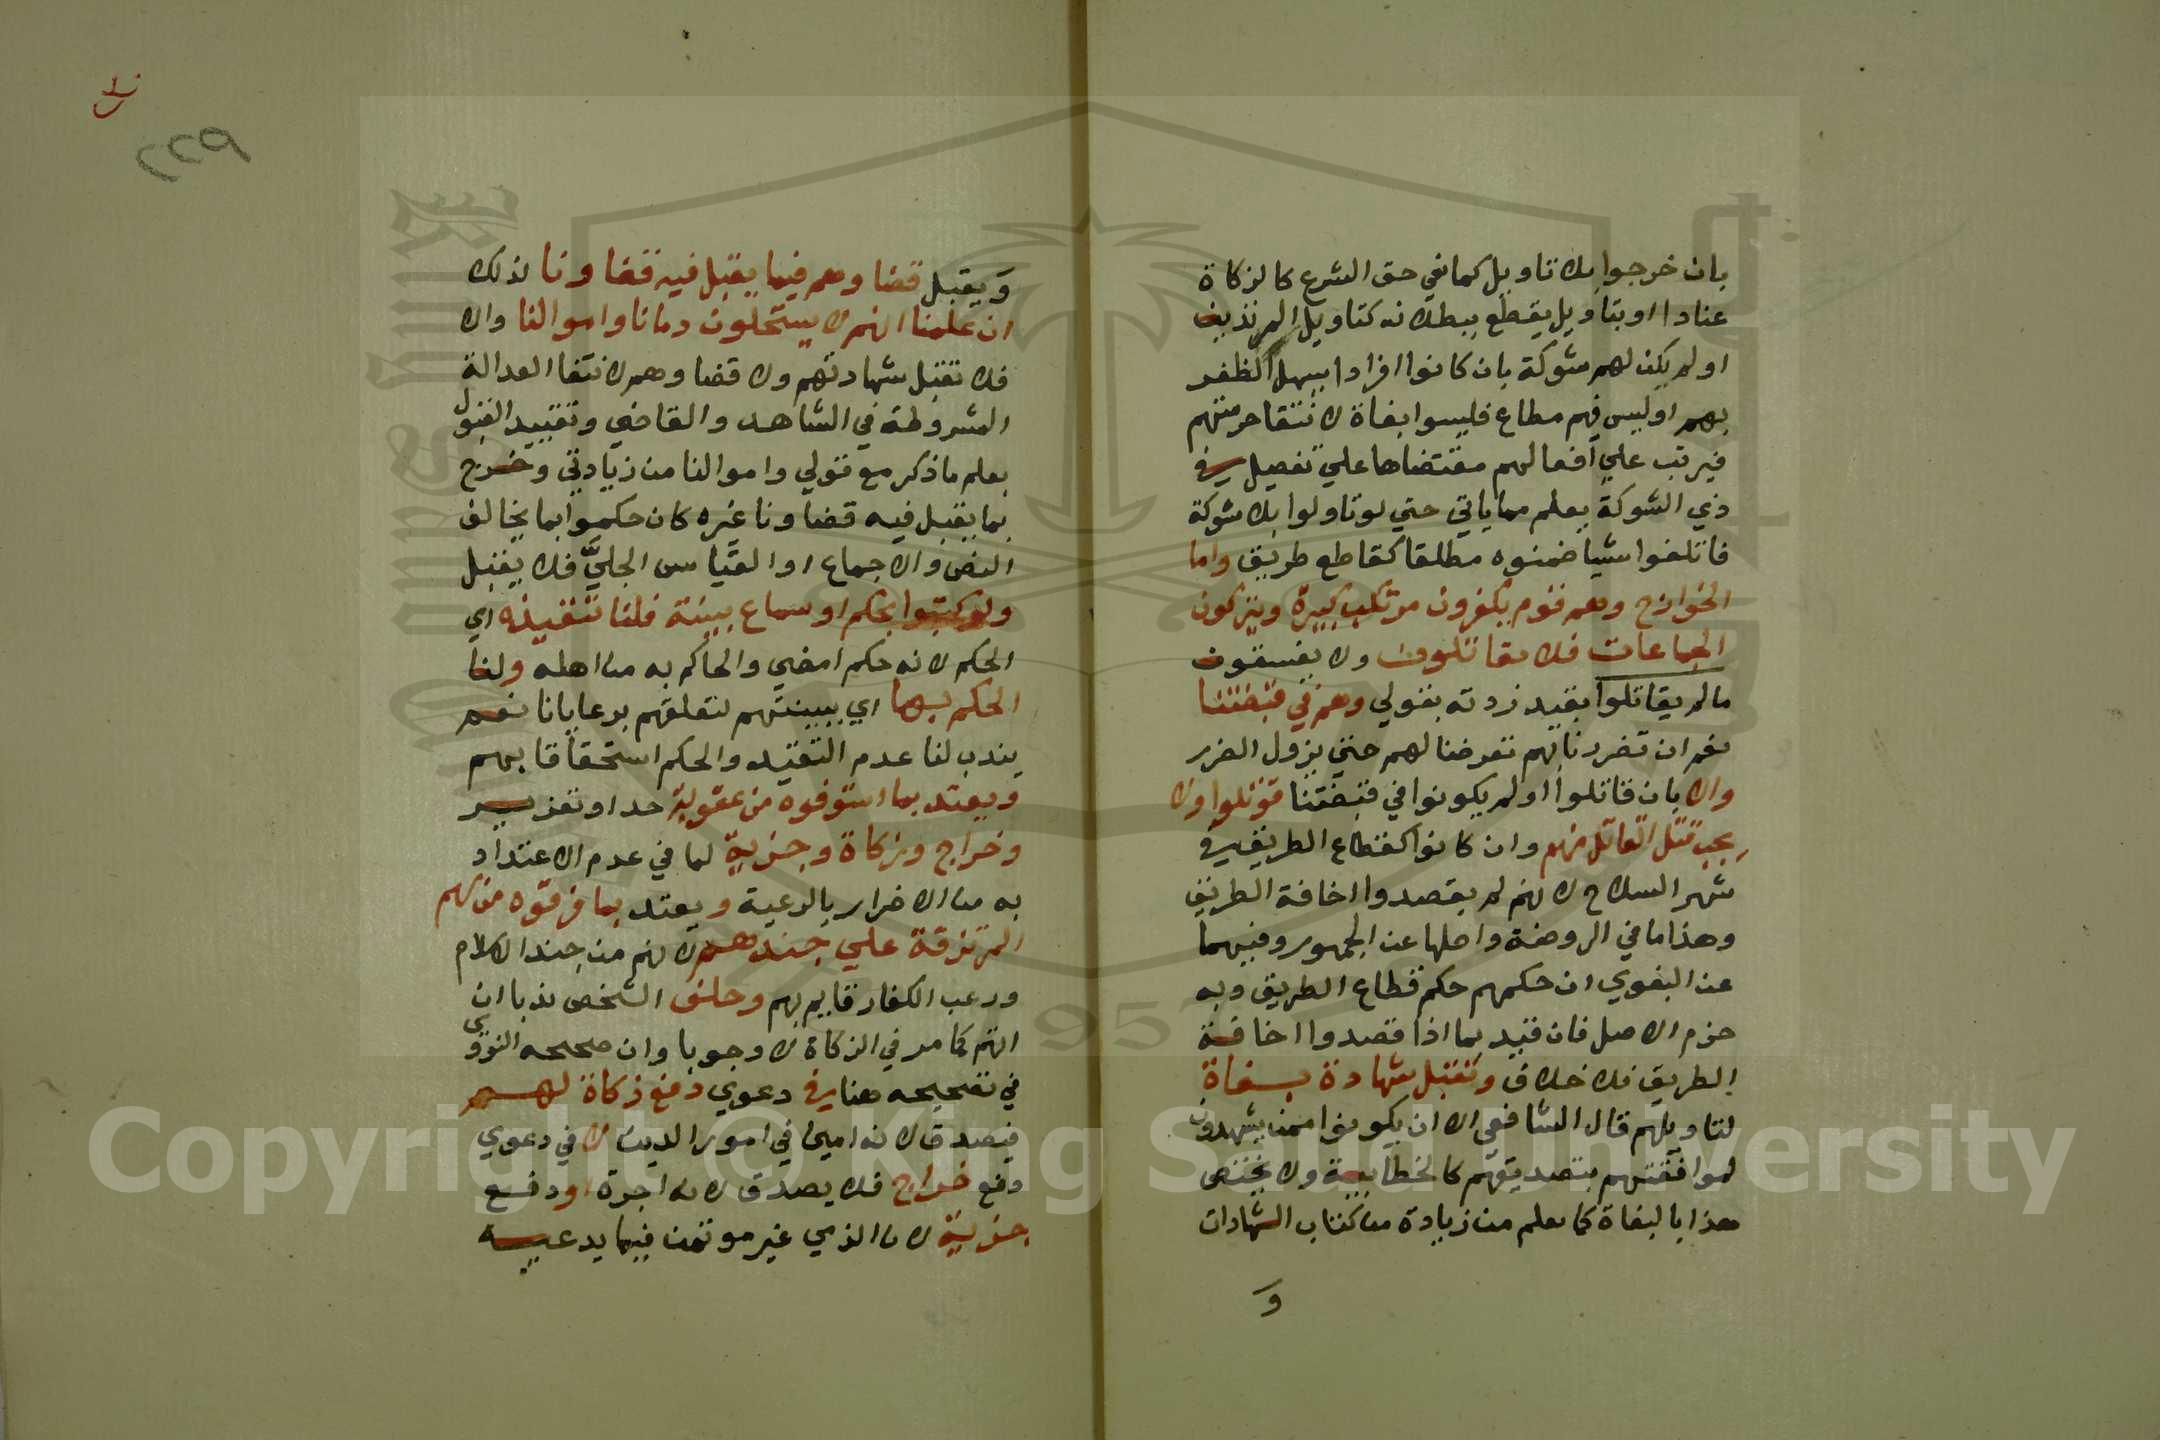 بان خرجوا بلا تاويل كمانعي حق الشرع كالزكاة
عنادا او بتاويل يقطع ببطلانه كتاويل المرتدين
او لم يكن لهم شوكة بان كانوا افرادا يسهل الظفر
بهم او ليس فيهم مطاع فليسوا بغاة لانتفا حرمتهم
فيرتب علي افعالهم مقتضاها علي تفصيل في
ذي الشوكة يعلم مما ياتي حتي لو تاولوا بلا شوكة
فاتلفوا شيا ضمنوه مطلقا كقاطع طريق واما
الخوارج وهم قوم يكفرون مرتكب كبيرة ويتركون
الجماعات فلا يقاتلون ولا يفسقون
مالم يقاتلوا بقيد زدته بقولي وهم في قبضتنا
نعم ان تضررنا بهم تعرضنا لهم حتي يزول الضرر
والا بان قاتلوا او لم يكونوا في قبضتنا قوتلوا ولا
يجب قتل القاتل منهم وان كانوا كقطاع الطريق في
شهر السلاح لانهم لم يقصدوا اخافة الطريق
وهذا ما في الروضة واصلها عن الجمهور وفيهما
عن البغوي ان حكمهم حكم قطاع الطريق وبه
جزم الاصل فان قيد بما اذا قصدوا اخافة
الطريق فلا خلاف وتقبل شهادة بغاة
لتاويلهم قال الشافعي الا ان يكونوا ممن يشهدون
لموافقتهم بتصديقهم كالخطابية ولا يختص
هذا بالبغاة كما يعلم من زيادة من كتاب الشهادات
و
لا
٢٢٩
ويقبل قضاوهم فيما يقبل فيه قضاونا لذلك
ان علمنا انهم لا يستحلون دمانا واموالنا والا
فلا تقبل شهادتهم ولا قضاوهم لانتفا العدالة
المشروطة في الشاهد والقاضي وتقييد القبول
بعلم ما ذكر مع قولي واموالنا من زيادتي وخرج
بما يقبل فيه قضاونا غيره كان حكموا بما يخالف
النص والاجماع او القياس الجلي فلا يقبل
ولو كتبوا بحكم او سماع بينة فلنا تنفيذه اي
الحكم لانه حكم امضي والحاكم به من اهله ولنا
الحكم بها اي ببينتهم لتعلقهم برعايانا نعم
يندب لنا عدم التنفيذ والحكم استخفافا بهم
ويعتد بما استوفوه من عقوبة حد او تعزير
وخراج وزكاة وجزية لما في عدم الاعتداد
به من الاضرار بالرعية ويعتد بما فرقوه من سهم
المرتزقة علي جندهم لانهم من جند الاسلام
ورعب الكفار قايم بهم وحلف الشخص ندبا ان
اتهم كما مر في الزكاة لا وجوبا وان صححه النووي
في تصحيحه هنا في دعوي دفع زكاة لهم
فيصدق لانه امين في امور الدين لا في دعوي
دفع خراج فلا يصدق لانه اجرة او دفع
جزية لان الذمي غير موتمن فيما يدعيه
Copyright © King Saud University
957